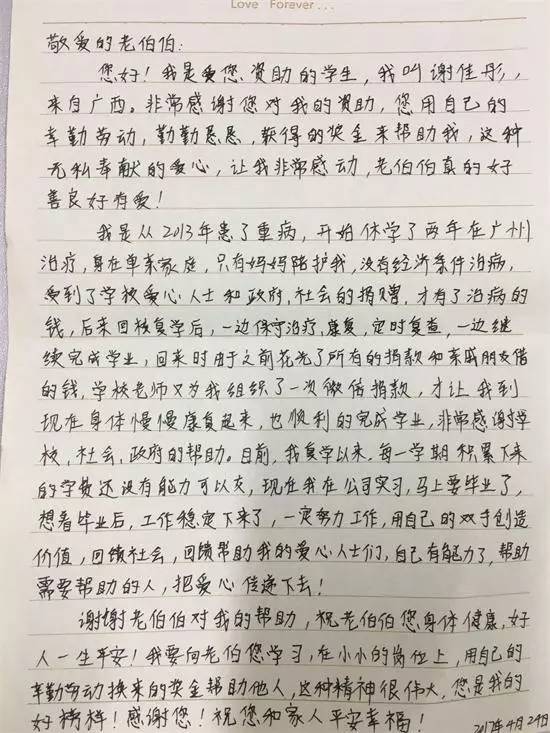 Love Forever...
敬爱的老伯伯:
您好!我是受您资助的学生,我叫谢佳彤,
来自广西。非常感谢您对我的资助,您用自己的
辛勤劳动,勤勤恳恳,获得的奖金来帮助我,这种
无私奉献的爱心,让我非常感动,老伯伯真的好
善良好有爱!
我是从2013年患了重病,开始休学了两年在广州
治疗,身在单亲家庭,只有妈妈陪护我,没有经济条件治病,
受到了学校爱心人士和政府,社会的捐赠,才有了治病的
钱,后来回校复学后,一边保守治疗,康复,定时复查,一边继
续完成学业,回来时由于之前花光了所有的捐款和亲戚朋友借
的钱,学校老师又为我组织了一次微信捐款,才让我到
现在身体慢慢康复起来,也顺利的完成学业,非常感谢学
校,社会,政府的帮助。目前,我复学以来,每一学期积累下来
的学费还没有能力可以交,现在我在公司实习,马上要毕业了,
想着毕业后,工作稳定下来了,一定努力工作,用自己的双手创造
价值,回馈社会,回馈帮助我的爱心人士们,自己有能力了,帮助
需要帮助的人,把爱心传递下去!
谢谢老伯伯对我的帮助,祝老伯伯您身体健康,好
人一生平安!我要向老伯您学习,在小小的岗位上,用自己的
辛勤劳动换来的奖金帮助他人,这种精神很伟大,您是我的
好榜样!感谢您!祝您和家人平安幸福!
2017年4月24日